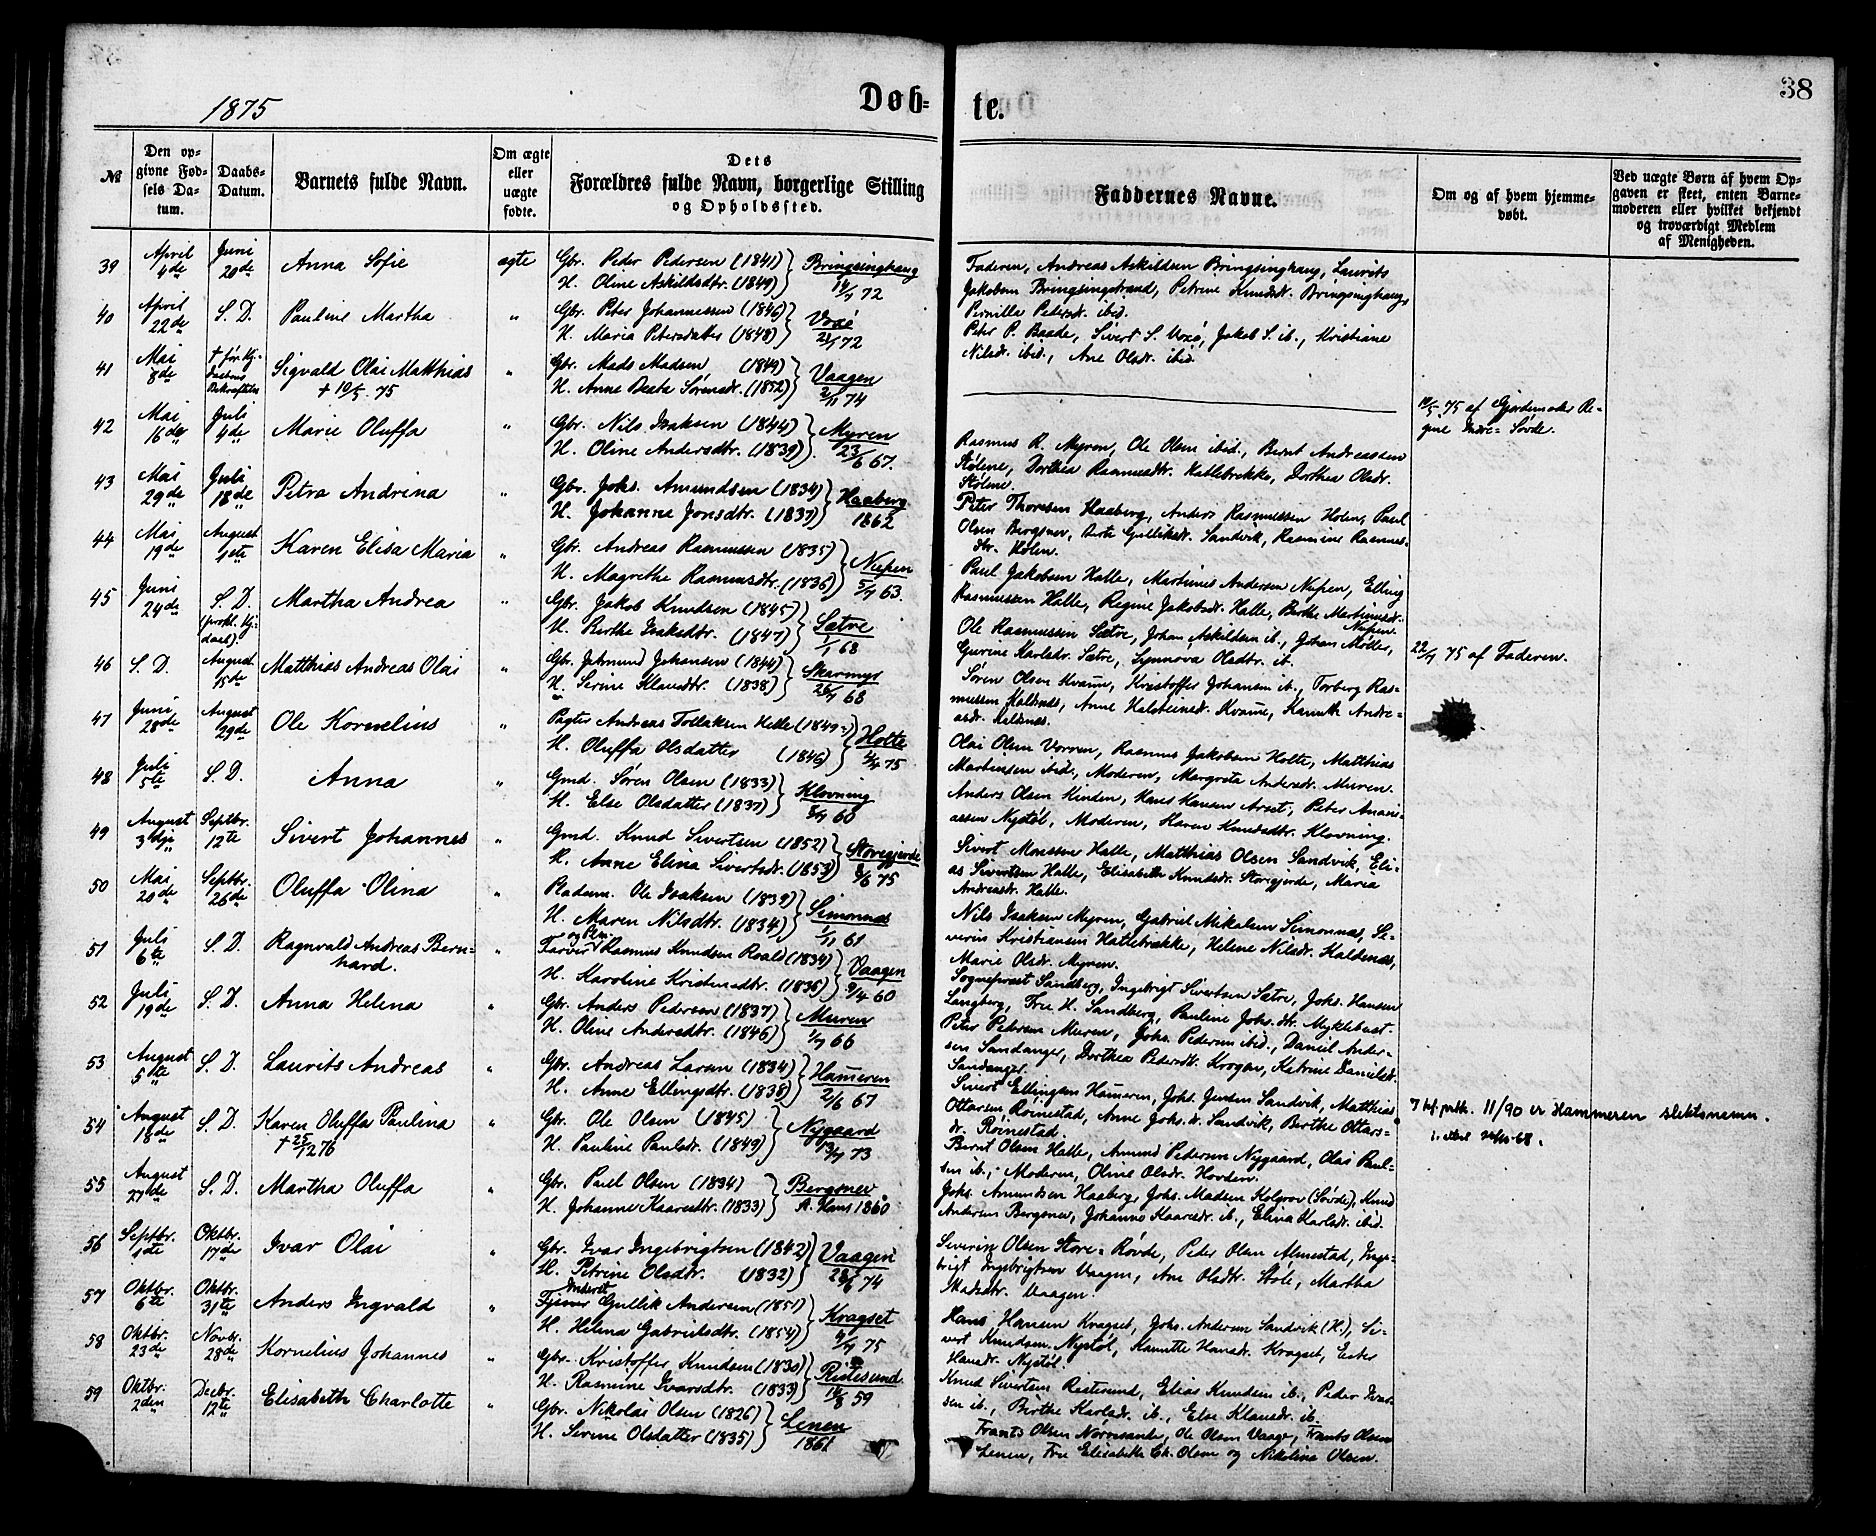 38
1875
Døb-
te.
№
Den op-
givne Fød-
sels Da-
tum.
Daabs-
Datum.
Barnets fulde Navn.
Om ægte
eller
uægte
fødte.
Dets
Forældres fulde Navn, borgerlige Stilling
og Opholdssted.
Faddernes Navne.
Om og af hvem hjemme-
døbt.
Ved uægte Børn af hvem Op-
gaven er skeet, enten Barne-
moderen eller hvilket bekjendt
og troværdigt Medlem
af Menigheden.
39 April 4de Juni 20de Anna Sofie ægte
Gbr. Peder Pedersen (1841)
H. Oline Askildsdtr. (1849) Bringsinghaug 14/7 72
Faderen, Andreas Askildsen Bringsinghaug, Laurits
Jakobsen Bringsingstrand, Petrine Knudsdr. Bringsinghaug,
Pernille Petersdr. ibid.
40 April 22de S. D. Pauline Martha "
Gbr. Peter Johannessen (1846)
H. Maria Petersdatter (1848) Voxø
Peter P. Baade, Sivert S. Voxø, Jakob S. ib., Kristiane
Nilsdr. ibid., Ane Olsdr. ibid.
41 Mai 8de Sigvald Olai Matthias "
† 10/5. 75
Gbr. Mads Madsen (1849)
H. Anne Beata Sørensdr. (1852) Vaagen 2/11 74
10/5 75 af Gjordemoder Re-
gine Indre-Søvde.
42 Mai 16de Juli 4de Marie Oluffa "
Gbr. Nils Isaksen (1844)
H. Oline Andersdtr. (1839) Myren 23/6 67.
Rasmus R. Myren, Ole Olsen ibid., Bernt Andreassen
Stølene, Dorthea Rasmusdtr. Hatlebrekke, Dorthea Olsdr.
Stølene.
43 Mai 29de Juli 18de Petra Andrina "
Gbr. Johs. Amundsen (1834)
H. Johanne Jonsdtr. (1837) Haaberg 1862
Peter Thoresen Haaberg, Anders Rasmussen Holen, Paul
Olsen Bergsnev, Berte Gulliksdr. Sandvik, Rasmine Rasmus-
dtr. Holen.
44 Mai 19de August 1ste Karen Elisa Maria "
Gbr. Andreas Rasmussen (1835)
H. Magrethe Rasmusdtr. (1836) Nupen 5/7 63.
Paul Jakobsen Halle, Martinus Andersen Nupen, Elling
Rasmussen Halle, Regine Jakobsdr. Halle, Berthe Martinusdr.
Nupen.
45 Juni 24de S. D. Martha Andrea "
Gbr. Jakob Knudsen (1845)
H. Berthe Isaksdtr. (1847) Sætre 1/1 68
Ole Rasmussen Sætre, Johan Askildsen ib., Johan Møller,
Gurine Karlsdr. Sætre, Synnøva Olsdtr. ib.
22/7 75 af Faderen.
46 S. D. August 15de Matthias Andreas Olai "
Gbr. Johansen (1844)
H. Serine Klausdtr. (1838) Skarmyr 68
Søren Olsen Kvame, Kristoffer Johansen ib., Torberg Ras-
mussen Haldsnes, Anne Halsteinsdr. Kvame, Hanna Andre-
asdr. Haldsnes.
47 Juni 28de August 29de Ole Kornelius "
Pagter Andreas Tollaksen Helle (1849)
H. Oluffa Olsdatter (1846) Holte 75
Olai Olsen Vorren, Rasmus Jakobsen Holte, Matthias
Martinsen ibid., Moderen, Margrete Andersdr. Muren.
48 Juli 5te S. D. Anna "
Gmd. Søren Olsen (1833)
H. Else Olsdatter (1837) Klovning 60
Anders Olsen Hinden, Hans Hansen Arset, Peter Anani-
assen Nystøl, Moderen, Karen Knudsdtr. Klovning.
49 August 3dje Septbr. 12te Sivert Johannes "
Gmd. Knud Sivertsen (1852)
H. Anne Elina Sivertsdr. (1853) Storegjerde 75
Sivert Monssen Halle, Matthias Olsen Sandvik, Eli-
as Sivertsen Halle, Elisabeth Knudsdr. Storegjerde, Maria
Andreasdr. Halle.
50 Mai 20de Septbr. 26de Oluffa Olina "
Pladsm. Ole Isaksen (1839)
H. Maren Nilsdtr. (1834) Simonnes 1/11 61
Nils Isaksen Myren, Gabriel Mikalsen Simonnes, Se-
verin Kristiansen Hatlebrekke, Helene Nilsdr. Haldsnes,
Marie Olsdr. Myren.
51 Juli 6te S. D. Ragnvald Andreas Bern-
hard. "
Farver Rasmus Knudsen Roald (1834)
H. Karoline Kristensdtr. (1835) Vaagen 9/4 60
Sogneprest Sandberg, Ingebrigt Sivertsen Sætre, Johs. Hansen
Langberg, Frue H. Sandberg, Pauline Johs.dtr. Myklebust.
52 Juli 19de S. D. Anna Helena "
Gbr. Anders Pedersen (1837)
H. Oline Andersdtr. (1846) Muren 1/7 66
Peter Petersen Muren, Johs. Pedersen ibid., Daniel Ander-
sen Sandanger, Dorthea Pedersdtr. Krogen, Katrine Danielsdr.
Sandanger.
53 August 5te S. D. Laurits Andreas "
Gbr. Andreas Larsen (1834)
H. Anne Ellingsdtr. (1838) Hameren 2/6 67
Sivert Ellingsen Hameren, Johs. Jensen Sandvik, Matthias
Ottarsen Roinestad, Anne Johs.dr. Sandvik, Berthe Ottars-
dr. Roinestad.
11/90 er Hammeren slektsnamn.
54 August 18de S. D. Karen Oluffa Paulina "
† 25/12 76
Gbr. Ole Olsen (1845)
H. Pauline Paulsdr. (1849) Nygaard 73
Bernt Olsen Halle, Amund Pedersen Nygaard, Olai Paul-
sen ib., Moderen, Oline Olsdr. Hovden.
55 August 27de S. D. Martha Oluffa "
Gbr. Paul Olsen (1834)
H. Johanne Kaaresdtr. (1833) Bergsnev A. Hans 1860
Johs. Amundsen Haaberg, Johs. Madsen Kolgrov (Søvde), Knud
Andersen Bergsnev, Johanne Kaaresdr. ib., Elina Karlsdr. ibid.
56 Septbr. 1ste Oktbr. 17de Ivar Olai "
Gbr. Ivar Ingebrigtsen (1842)
H. Petrine Olsdtr. (1832) Vaagen 28/6 74
Severin Olsen Store-Røvde, Peder Olsen Almestad, Inge-
brigt Ingebrigtsen Vaagen, Ane Olsdtr. Støle, Martha
Madsdtr. Vaagen.
57 Oktbr. 6te Oktbr. 31te Anders Ingvald "
Inderst
Gullik Andersen (1851)
H. Helena Gabrielsdtr. (1854) Kragset 75
Hans Hansen Kragset, Johs. Andersen Sandvik (H.), Si-
vert Knudsen Nystøl, Hansdr. Kragset, Ester
Hansdr. Nystøl.
58 Oktbr. 23de Novbr. 28de Kornelius Johannes "
Gbr. Kristoffer Knudsen (1830)
H. Rasmine Ivarsdtr. (1833) Ristesund 14/8 59
Knud Sivertsen Ristesund, Elias Knudsen ib., Peder Ivar-
sen ib., Birthe Karlsdr. ib., Else Klausdr. ib.
59 Oktbr. 2den Decbr. 12te Elisabeth Charlotte "
Gbr. Nikolai Olsen (1826)
H. Serine Olsdatter (1835) Lenen 1861
Frants Olsen Nørresande, Ole Olsen Vaage, Frants Olsen
Lenen, Frue Elisabeth Ch. Olsen og Nikolina Olsen.